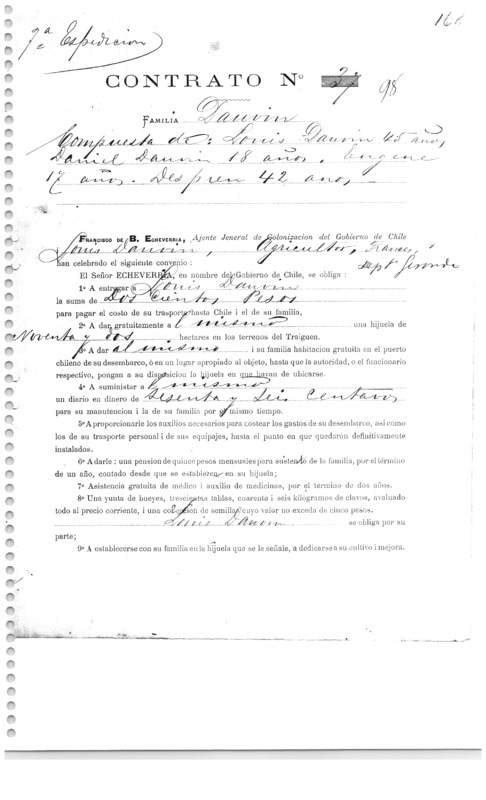 168
7ª Espedicion
CONTRATO Nº 37 98
FAMILIA Dauvin
Compuesta de: Louis Dauvin 45 año,
Daniel Dauvin 18 años, Eugene
17 años. Despren 42 ano,
FRANCISCO DE B. ECHEVERRIA, Ajente Jeneral de Colonizacion del Gobierno de Chile
Louis Dauvin, Agricultor, Frances,
han celebrado el siguiente convenio: Dept Gironde
El Señor ECHEVERRÍA, en nombre del Gobierno de Chile, se obliga:
1º A entregar a Louis Dauvin
la suma de Dos Cientos Pesos
para pagar el costo de su trasporte hasta Chile i el de su familia,
2º A dar gratuitamente a l mismo una hijuela de
Noventa y dos hectares en los terrenos del Traiguen.
3º A dar al mismo i su familia habitacion gratuita en el puerto
chileno de su desembarco, ó en un lugar apropiado al objeto, hasta que la autoridad, o el funcionario
respectivo, pongan a su disposicion la hijuela en que hayan de ubicarse.
4º A suministar a l mismo
un diario en dinero de Sesenta y Seis Centavos
para su manutencion i la de su familia por el mismo tiempo.
5º A proporcionarle los auxilios necesarios para costear los gastos de su desembarco, asi como
los de su trasporte personal i de sus equipajes, hasta el punto en que quedarán definitivamente
instalados.
6º A darle: una pension de quince pesos mensuales para sustento de la familia, por el término
de un año, contado desde que se establezcan en su hijuela;
7º Asistencia gratuita de médico i auxilio de medicinas, por el termino de dos años.
8º Una yunta de bueyes, trescientas tablas, cuarenta i seis kilógramos de clavos, avaluado
todo al precio corriente, i una coleccion de semillas cuyo valor no exceda de cinco pesos.
Louis Dauvin se obliga por su
parte;
9º A establecerse con su familia en la hijuela que se le señale, a dedicarse a su cultivo i mejora.